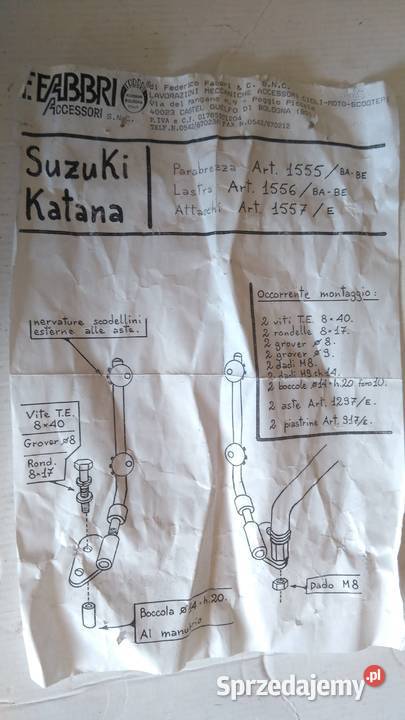 FABBRI
ACCESSORI S.n.c.
di Federico Fabbri & C. S.N.C.
LAVORAZIONI MECCANICHE ACCESSORI CICLI-MOTO-SCOOTERS
40023 CASTEL GUELFO DI BOLOGNA (BO)
Suzuki
Katana
Parabrezza Art. 1555/BA-BE
Lastra Art. 1556/BA-BE
Attacchi Art. 1557/E
Occorrente montaggio:
2 viti T.E. 8×40.
2 rondelle 8×17.
2 grover ø8.
2 grover ø9.
2 dadi M8.
2 dadi M9 ch14.
2 boccole ø14×h.20 foro10.
2 aste Art. 1297/E.
2 piastrine Art. 917/E.
nervature scodellini
esterne alle aste.
Vite T.E.
8×40
Grover ø8
Rond.
8×17
Dado M8
Boccola ø14×h.20.
Al manubrio
Sprzedajemy.pl